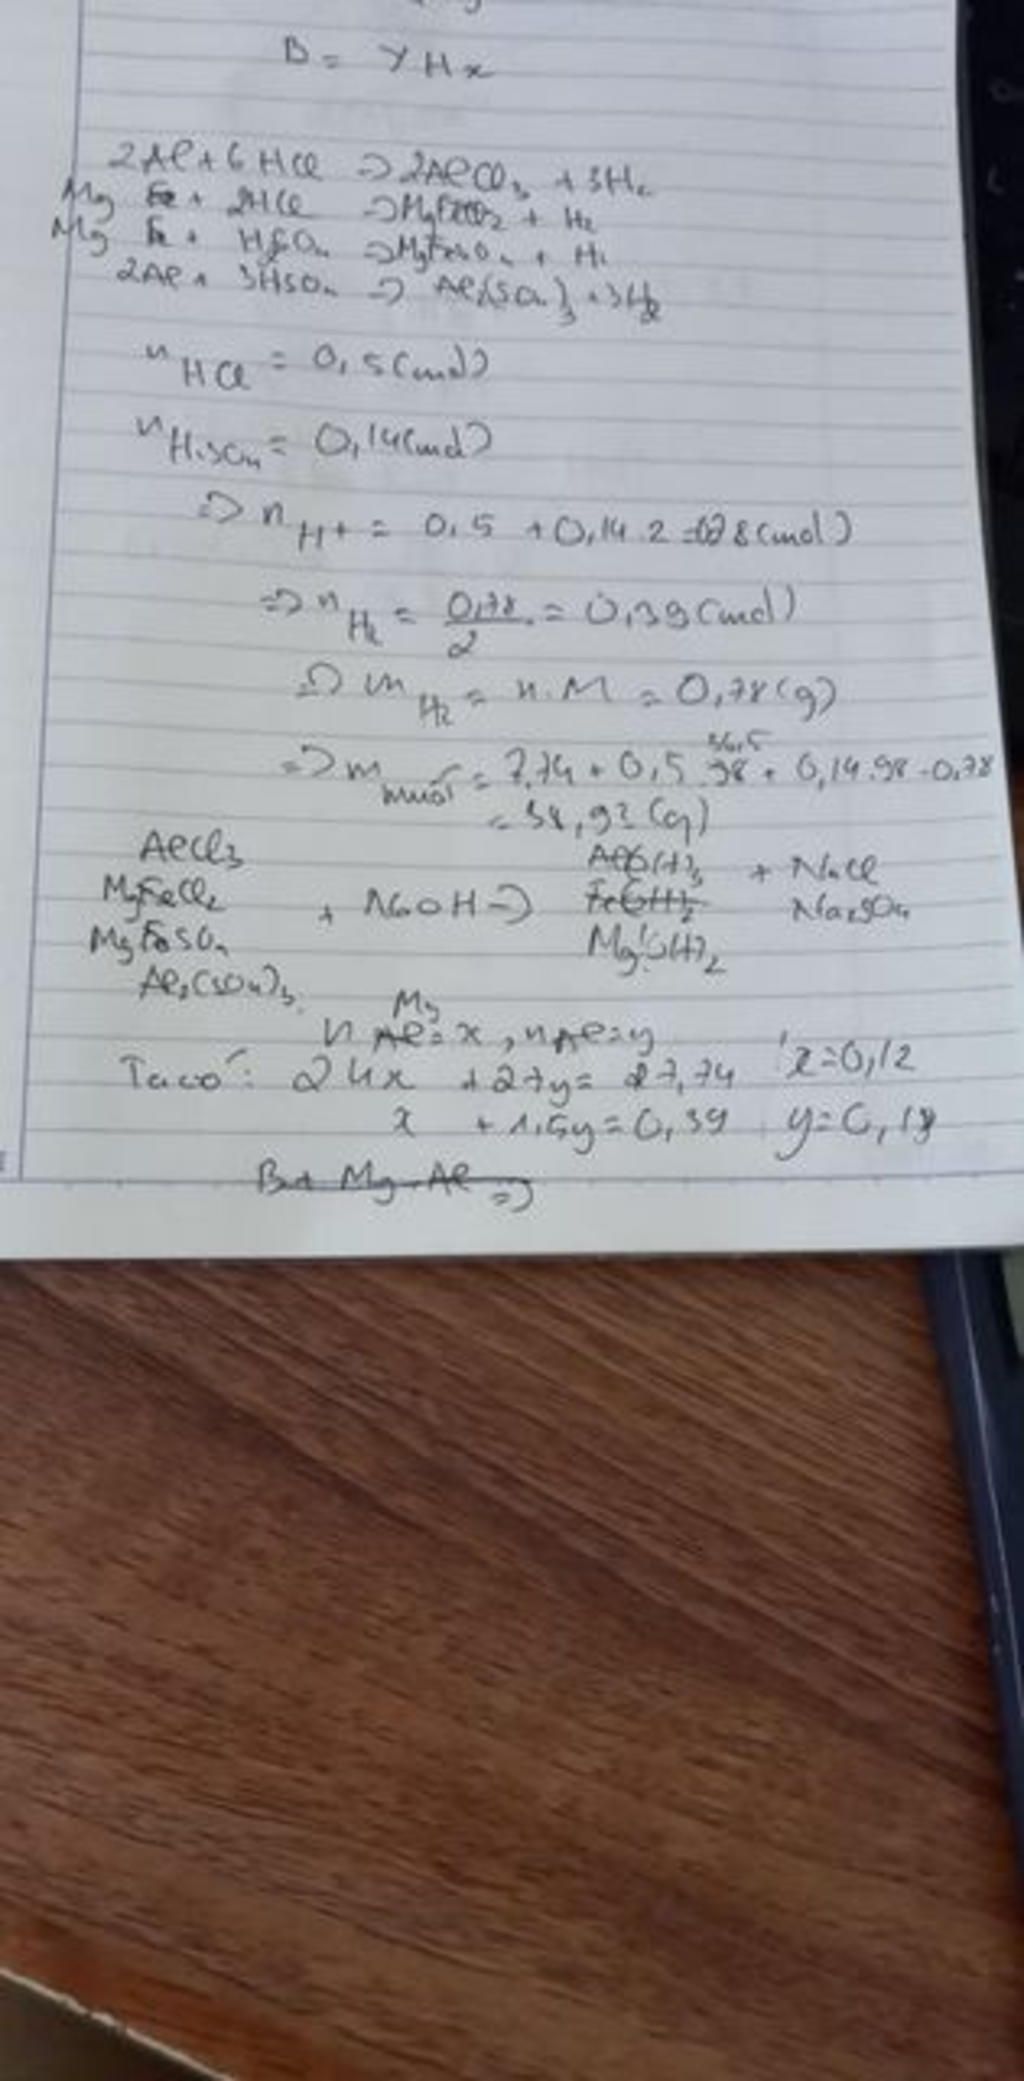 B = YHx
2Al + 6HCl => 2AlCl3 + 3H2
Mg + 2HCl => MgCl2 + H2
Mg + H2SO4 => MgSO4 + H2
2Al + 3HSO4 => Al2(SO4)3 + 3H2
nHCl = 0,5 (mol)
nH2SO4 = 0,14 (mol)
=> nH+ = 0,5 + 0,14.2 = 0,78 (mol)
=> nH2 = 0,78/2 = 0,39 (mol)
=> mH2 = n.M = 0,78 (g)
=> m muối = 7,74 + 0,5.36,5 + 0,14.98 - 0,78
= 38,93 (g)
AlCl3 Al(OH)3 + NaCl
MgCl2 + NaOH => Na2SO4
MgSO4 Mg(OH)2
Al2(SO4)3
nMg = x, nAl = y
Ta có: 24x + 27y = 7,74 x = 0,12
x + 1,5y = 0,39 y = 0,18